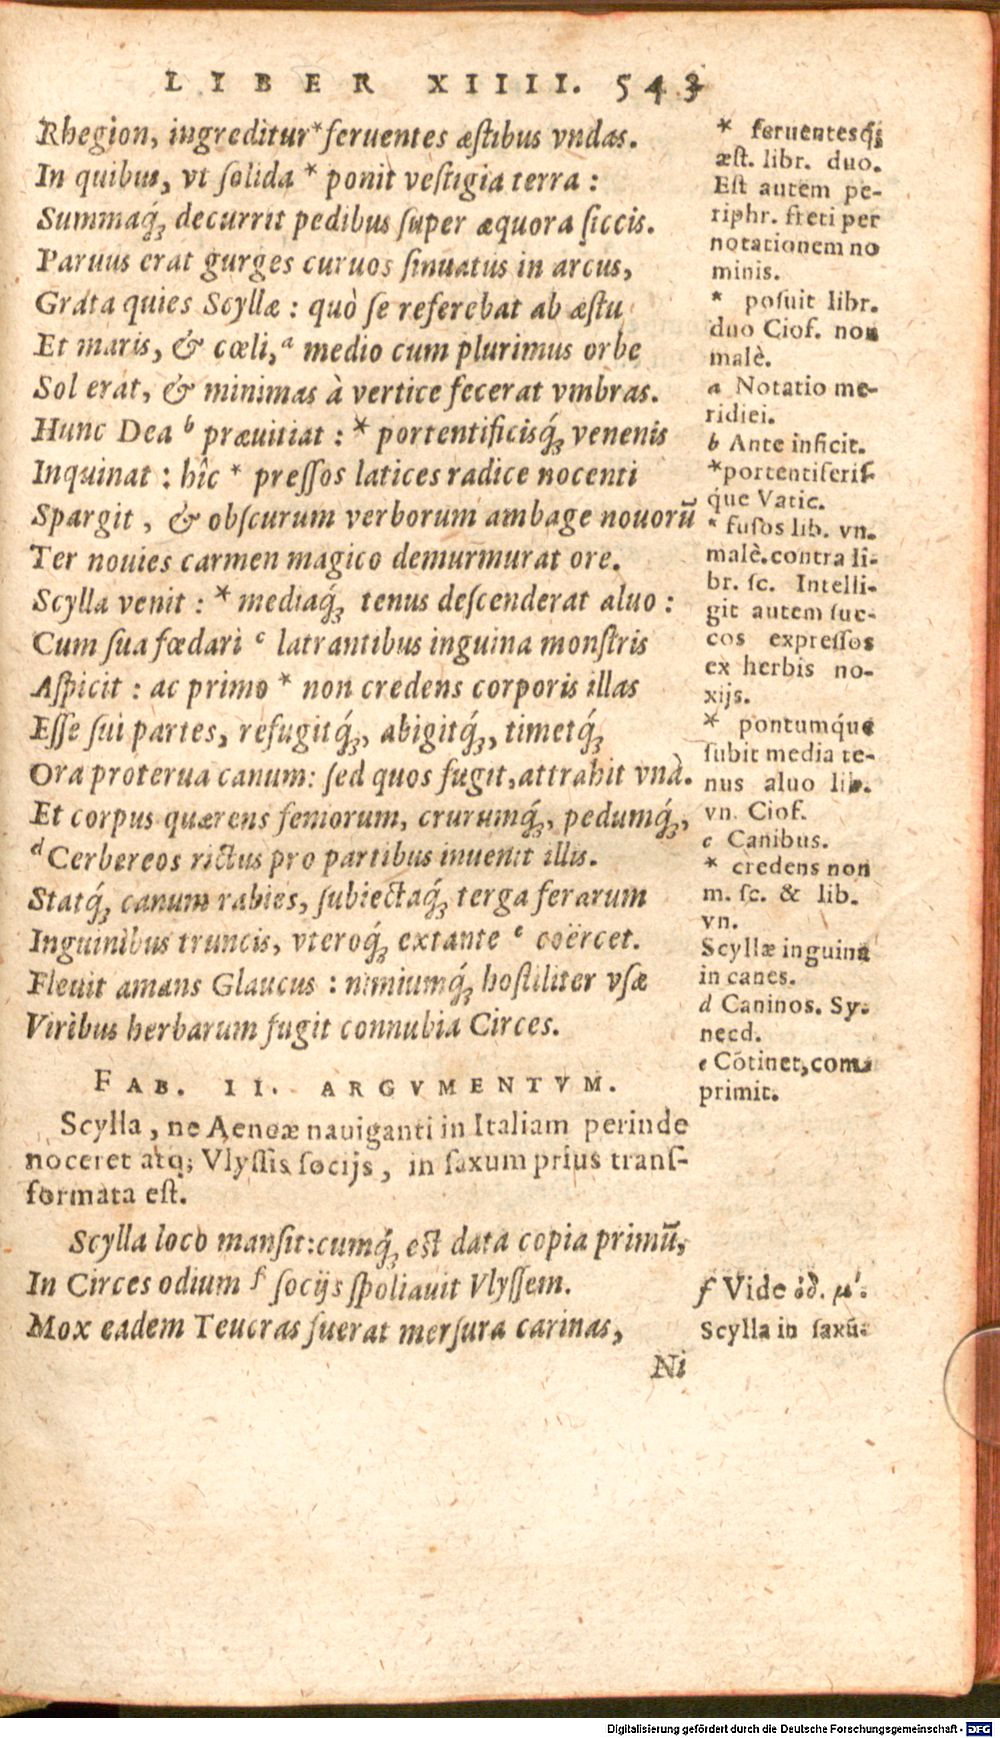 LIBER XIIII. 543
Rhegion, ingreditur * feruentes æstibus vndas.
In quibus, vt solida * ponit vestigia terra :
Summaq́; decurrit pedibus super æquora siccis.
Paruus erat gurges curuos sinuatus in arcus,
Grata quies Scyllæ : quò se referebat ab æstu
Et maris, & cœli, a medio cum plurimus orbe
Sol erat, & minimas à vertice fecerat vmbras.
Hunc Dea b præuitiat : * portentificisq́; venenis
Inquinat : hîc * pressos latices radice nocenti
Spargit, & obscurum verborum ambage nouorū
Ter nouies carmen magico demurmurat ore.
Scylla venit : * mediaq́; tenus descenderat aluo :
Cum sua fœdari c latrantibus inguina monstris
Aspicit : ac primo * non credens corporis illas
Esse sui partes, refugitq́;, abigitq́;, timetq́;
Ora proterua canum: sed quos fugit, attrahit vnà.
Et corpus quærens femorum, crurumq́;, pedumq́;,
d Cerbereos rictus pro partibus inuenit illis.
Statq́; canum rabies, subiectaq́; terga ferarum
Inguinibus truncis, vteroq́; extante e coërcet.
Fleuit amans Glaucus : nimiumq́; hostiliter vsæ
Viribus herbarum fugit connubia Circes.
FAB. II. ARGVMENTVM.
Scylla, ne Aeneæ nauiganti in Italiam perinde
noceret atq; Vlyssis socijs, in saxum prius trans-
formata est.
Scylla loco mansit: cumq́; est data copia primū,
In Circes odium f socijs spoliauit Vlyssem.
Mox eadem Teucras fuerat mersura carinas,
Ni
* feruentesq́;
æst. libr. duo.
Est autem pe-
riphr. freti per
notationem no
minis.
* posuit libr.
duo Ciof. non
malè.
a Notatio me-
ridiei.
b Ante inficit.
* portentiferis-
que Vatic.
* fusos lib. vn.
malè. contra li-
br. sc. Intelli-
git autem suc-
cos expressos
ex herbis no-
xijs.
* pontumq́ue
subit media te-
nus aluo lib.
vn. Ciof.
c Canibus.
* credens non
m. sc. & lib.
vn.
Scyllæ inguina
in canes.
d Caninos. Sy-
necd.
e Cōtinet, com-
primit.
f Vide ὀδ. μ'.
Scylla in saxū.
Digitalisierung gefördert durch die Deutsche Forschungsgemeinschaft - DFG